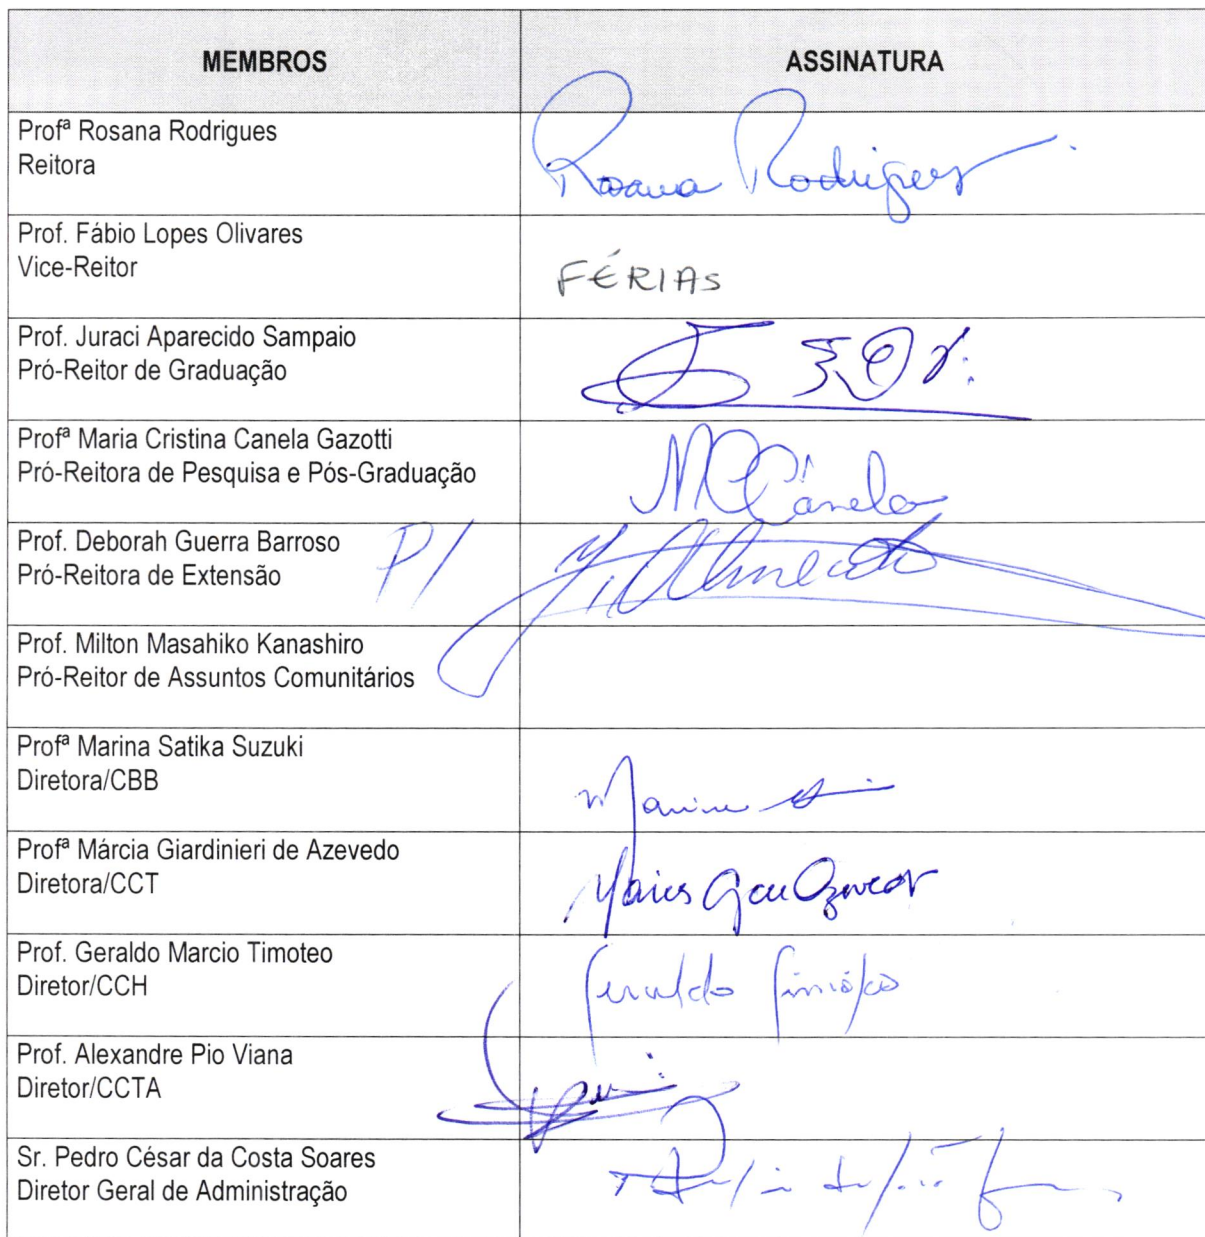 MEMBROS
ASSINATURA
Profª Rosana Rodrigues
Reitora
Rosana Rodrigues
Prof. Fábio Lopes Olivares
Vice-Reitor
FÉRIAS
Prof. Juraci Aparecido Sampaio
Pró-Reitor de Graduação
Profª Maria Cristina Canela Gazotti
Pró-Reitora de Pesquisa e Pós-Graduação
MCCanela
Prof. Deborah Guerra Barroso
Pró-Reitora de Extensão
P/
Prof. Milton Masahiko Kanashiro
Pró-Reitor de Assuntos Comunitários
Profª Marina Satika Suzuki
Diretora/CBB
Marina
Profª Márcia Giardinieri de Azevedo
Diretora/CCT
Prof. Geraldo Marcio Timoteo
Diretor/CCH
Geraldo Timóteo
Prof. Alexandre Pio Viana
Diretor/CCTA
Sr. Pedro César da Costa Soares
Diretor Geral de Administração